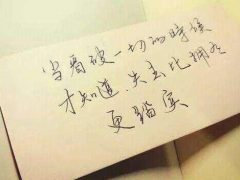 当看破一切的時候
才知道、失去比拥有
更踏実